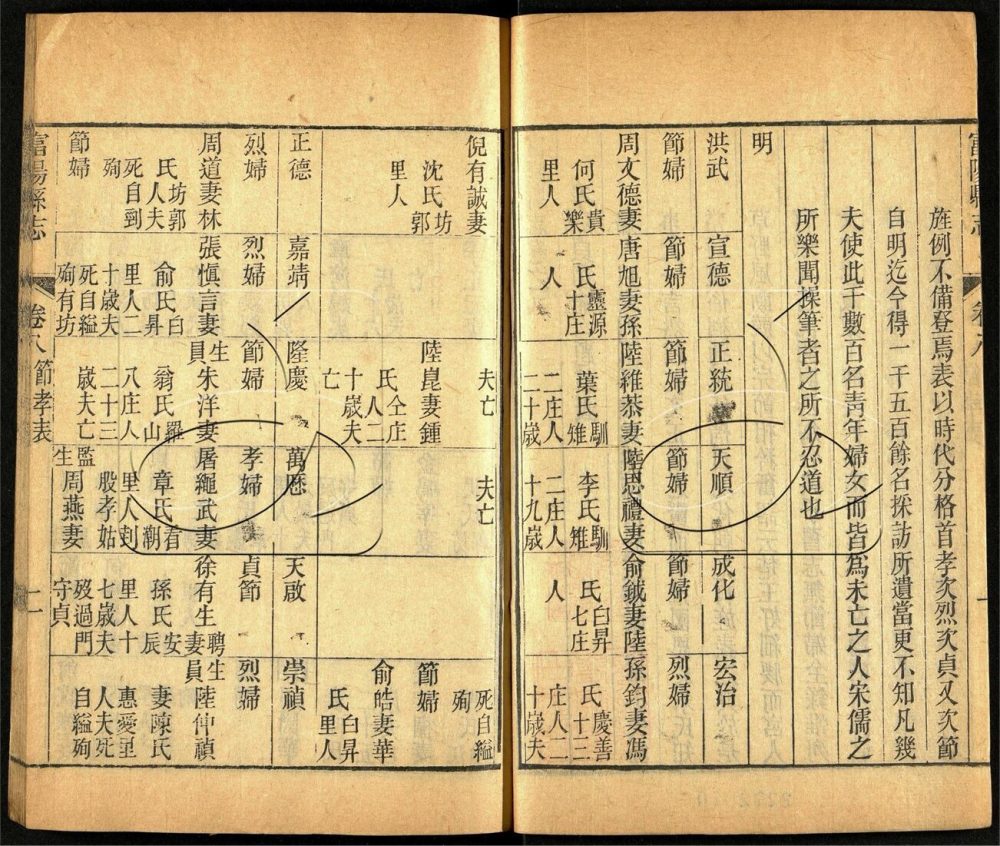 富陽縣志 卷八 一
旌例不備登焉表以時代分格首孝次烈次貞又次節
自明迄今得一千五百餘名採訪所遺當更不知凡幾
夫使此千數百名青年婦女而皆為未亡之人宋儒之
所樂聞操筆者之所不忍道也
明
洪武 宣德 正統 天順 成化 宏治
節婦 節婦 節婦 節婦 節婦 烈婦
周文德妻 唐旭妻孫 陸維恭妻 陸思禮妻 俞鉞妻陸 孫鈞妻馮
何氏貴樂 氏靈源十庄 葉氏馴雉 李氏馴雉 氏臼昇七庄 氏慶善十三
里人 人 二庄人二十歲 二庄人十九歲 人 庄人二十歲夫
倪有誠妻 夫亡 夫亡 死自縊殉
沈氏坊郭
里人
陸崑妻鍾 節婦
氏仝庄人二 俞皓妻華
十歲夫亡 氏臼昇里人
正德 嘉靖 隆慶 萬歷 天啟 崇禎
烈婦 烈婦 節婦 孝婦 貞節 烈婦
周道妻林 張愼言妻 生員朱洋妻 屠繩武妻 徐有生聘妻 生員陸仲禎
氏坊郭人夫 俞氏臼昇 翁氏羅山 章氏看潮 孫氏安辰 妻陳氏
死自刎殉 里人二十歲夫 八庄人二十三 里人刲股孝姑 里人十七歲夫 惠愛里人夫死
節婦 死自縊殉有坊 歲夫亡 監生周燕妻 歿過門守貞 自縊殉
富陽縣志 卷八節孝表 二